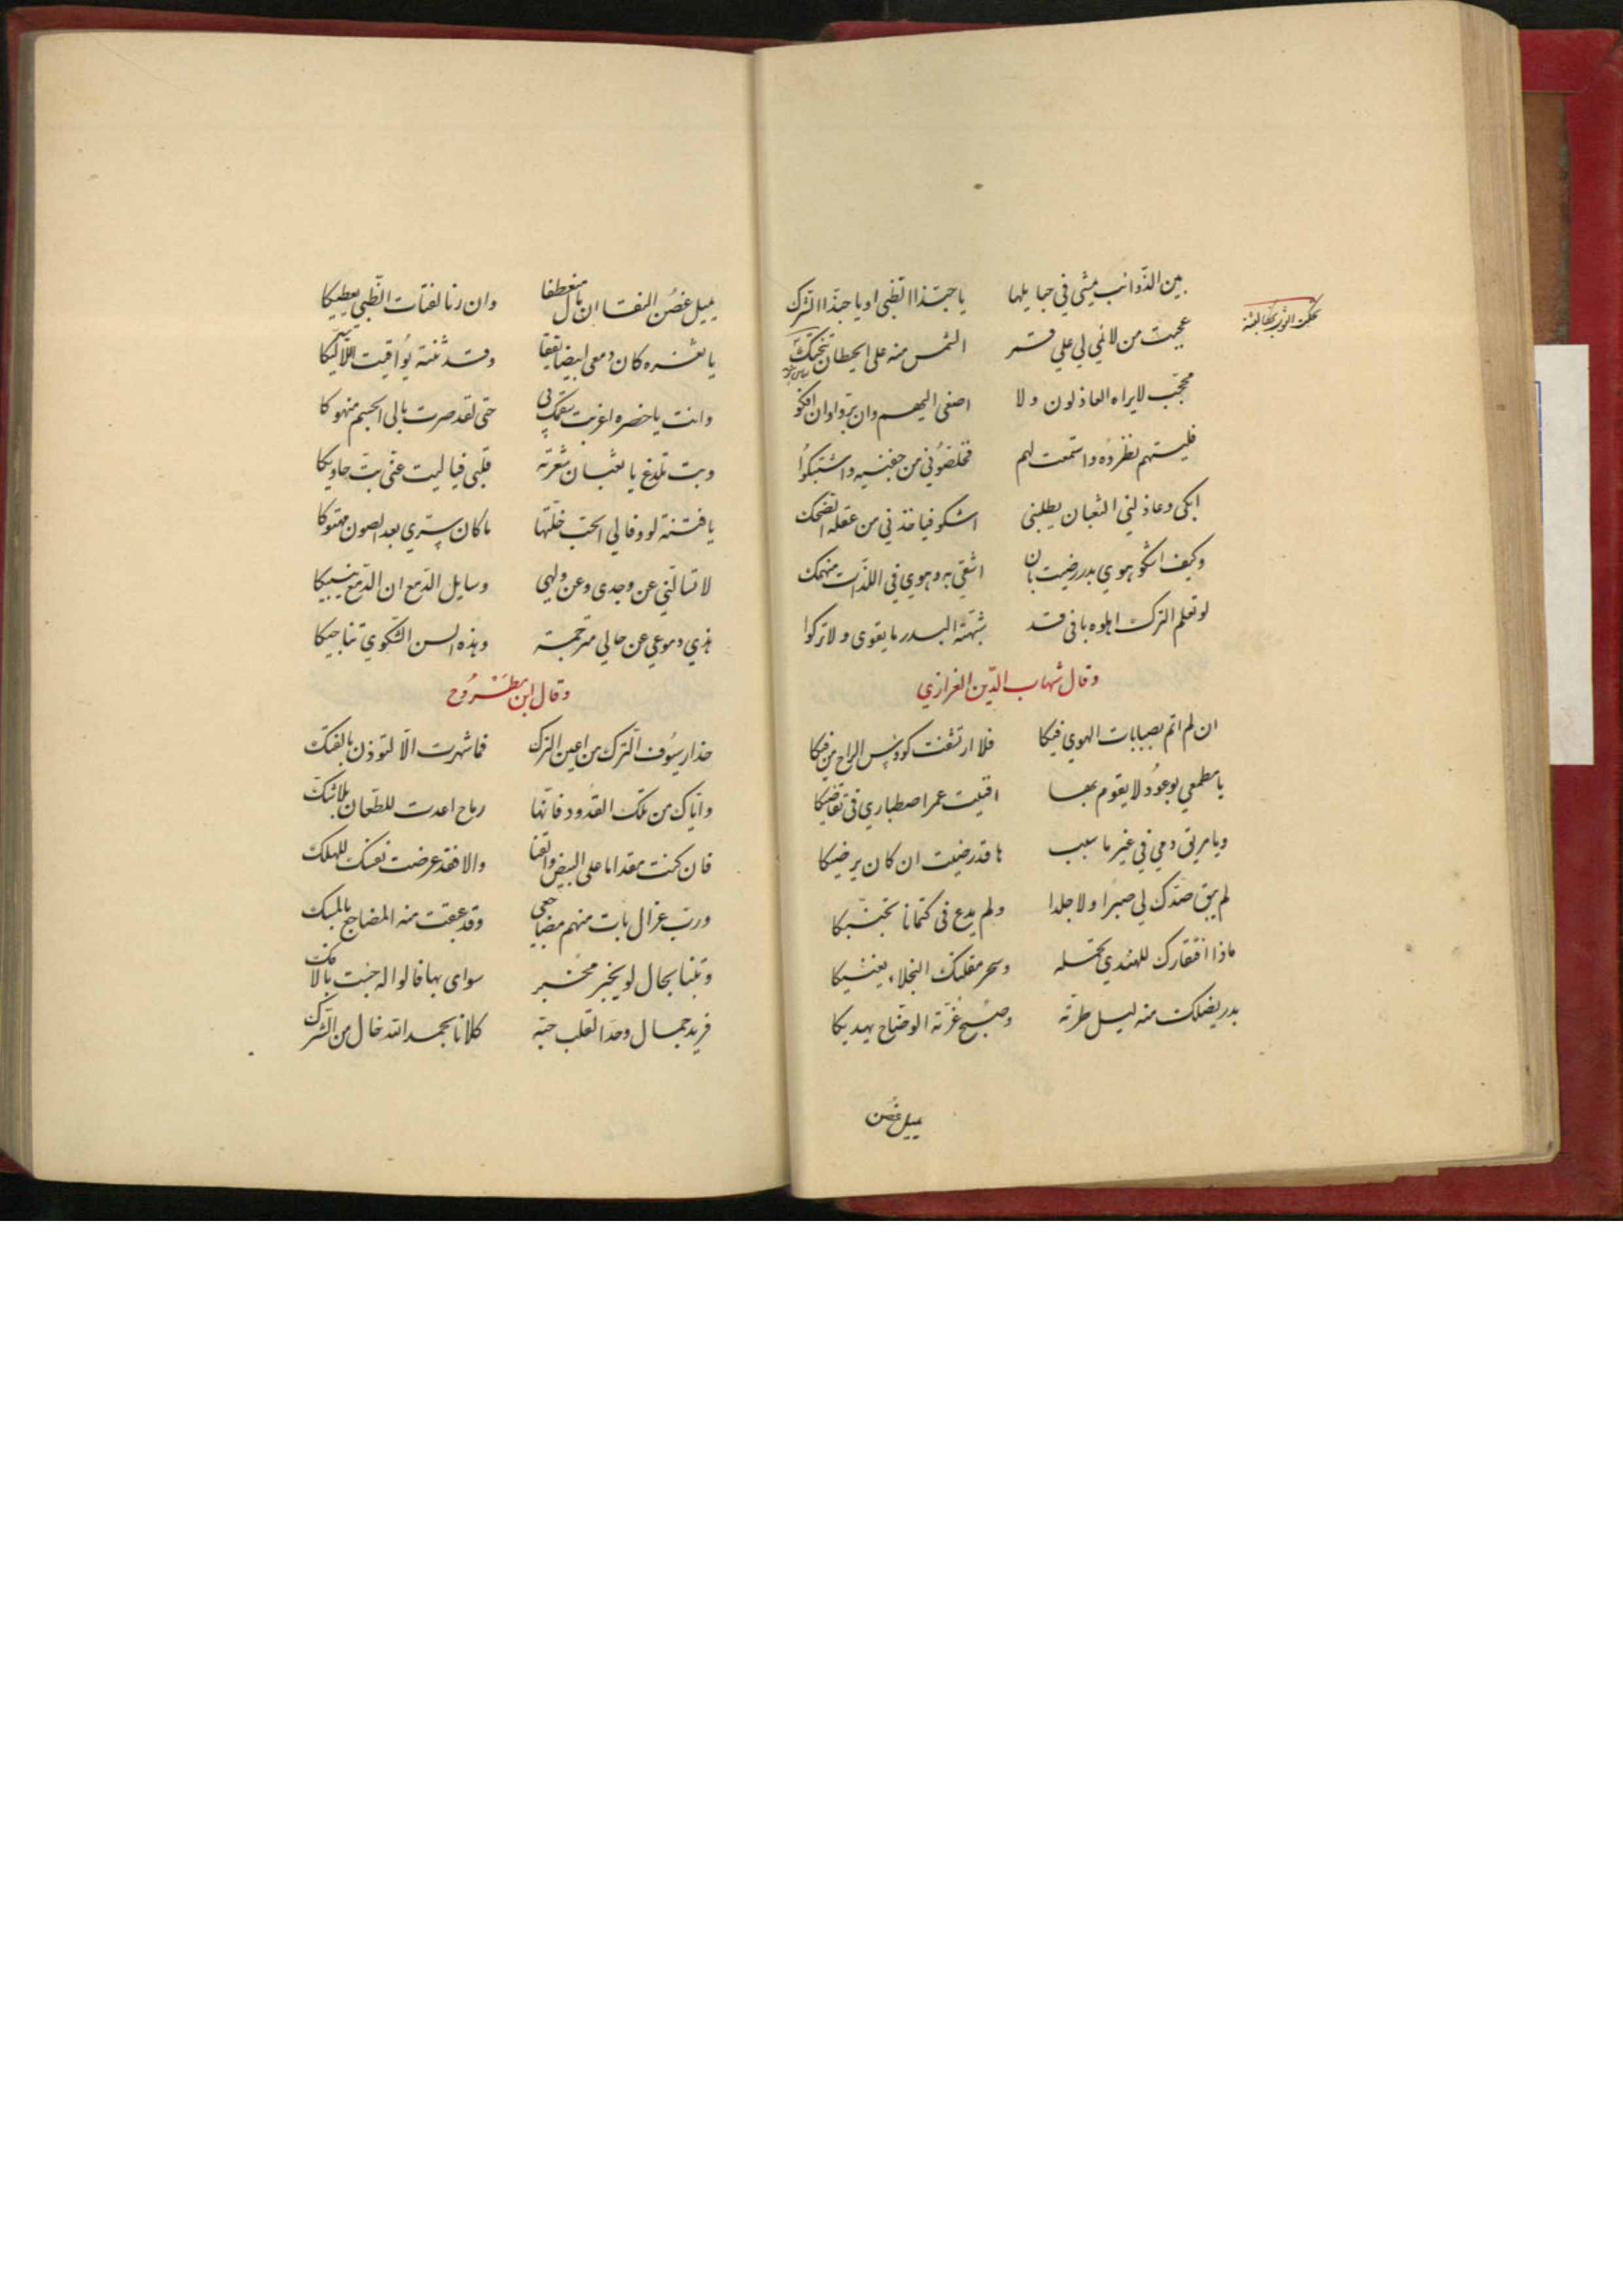 بين الذوائب يمشي في حبايلها يا حبّذا الظبى او يا حبّذا الشرك
عجبت من لائمي لي علي قمر الشمس منه على الحيطان تحتك
محجّب لا يراه العاذلون ولا اصغى اليهم وان برّوا وان افكوا
فليتهم نظروه واستمعت لهم فخلصوني من جفنيه واشتبكوا
ابكى وعاذلني التعبان يطلبنى اشكو فيا خذني من عقله الضحك
وكيف اشكو هوي بدر رضيت بان اشقي به وهو في اللذّات منهمك
لو تعلم الترك اهلوه بانى قد شبّهته البدر ما يقوى ولا تركوا
وقال شهاب الدّين العزازي
ان لم امت بصبابات الهوي فيكا فلا ارتشفت كووس الراح من فيكا
يا مطمعي بوعود لا يقوم بها افنيت عمر اصطباري في تقاضيكا
ويا مريق دمي في غير ما سبب ها قد رضيت ان كان يرضيكا
لم يبق صدّك لي صبرا ولا جلدا ولم يدع فى كتمانا تجنّيكا
ماذا افتقارك للهندي تحمله وسحر مقلتك النجلاء يغنيكا
بدر يضلك منه ليل طرته وصبح غرّته الوضاح يهديكا
يميل غصن
يميل غصن النقا ان مال منعطفا وان رنا لفتات الظبي يعطيكا
يا ثغره كان دمعى ابيضا يققا وقد ثنته يواقيت اللآليكا
وانت يا خصره اغريت سقمك بى حتى لقد صرت بالى الجسم منهوكا
وبت تلدغ يا ثعبان شعرته قلبى فيا ليت عنى بتّ حاويكا
يا فتنة لو وفا لي الحبّ خلّتها ما كان ستري بعد الصون مهتوكا
لا تسالنّي عن وجدى وعن ولهي وسايل الدّمع ان الدّمع ينبيكا
هذي دموعي عن حالي مترجمة وهذه السن الشكوي تناجيكا
وقال ابن مطروح
حذار سيوف الترك من اعين الترك فما شهرت الّا لتوذن بالفتك
وايّاك من تلك القدود فانّها رماح اعدت للطّعان بلا شكّ
فان كنت مقداما على البيض والقنا والا فقد عرضت نفسك للهلك
وربّ غزال بات منهم مضاجعى وقد عبقت منه المضاجع بالمسك
وبتنا بحال لو يخبّر مخبر سواى بها قالوا له جئت بالافك
فريد جمال وحّد القلب حبّه كلانا بحمد الله خال من الشرك